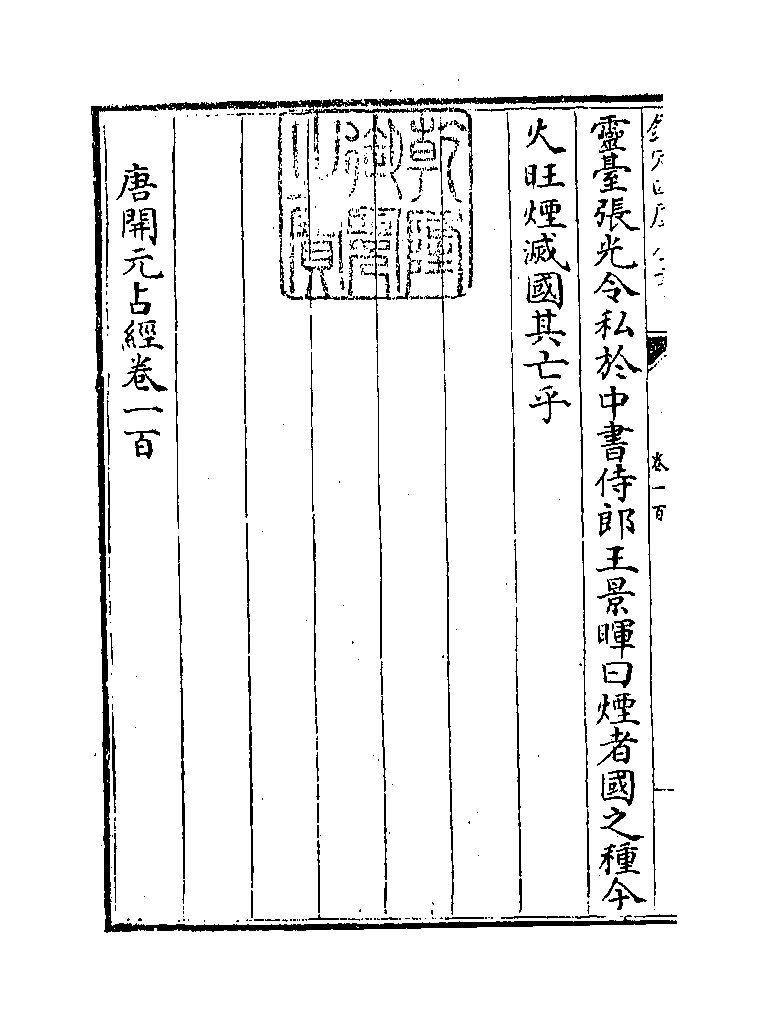 欽定四庫全書
卷一百
靈臺張光令私於中書侍郎王景暉曰煙者國之種今
火旺煙滅國其亡乎
乾隆御覽之寶
唐開元占經卷一百